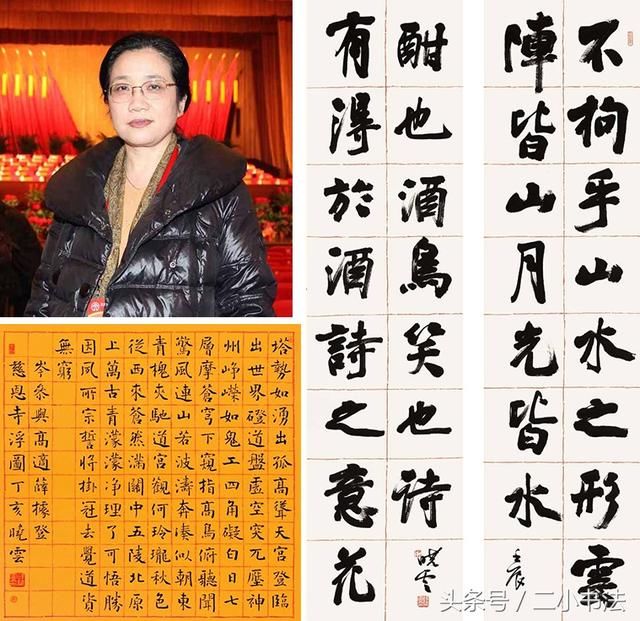 不拘乎山水之形雲
陣皆山月光皆水
壬辰
有得於酒詩之意花
酣也酒鳥笑也詩
曉雲
塔勢如湧出孤高聳天宮登臨
出世界磴道盤虛空突兀壓神
州崢嶸如鬼工四角礙白日七
層摩蒼穹下窺指高鳥俯聽聞
驚風連山若波濤奔湊似朝東
青槐夾馳道宮觀何玲瓏秋色
從西來蒼然滿關中五陵北原
上萬古青濛濛淨理了可悟勝
因夙所宗誓將掛冠去覺道資
無窮
岑參與高適薛據登
慈恩寺浮圖丁亥曉雲
头条号 / 二小书法